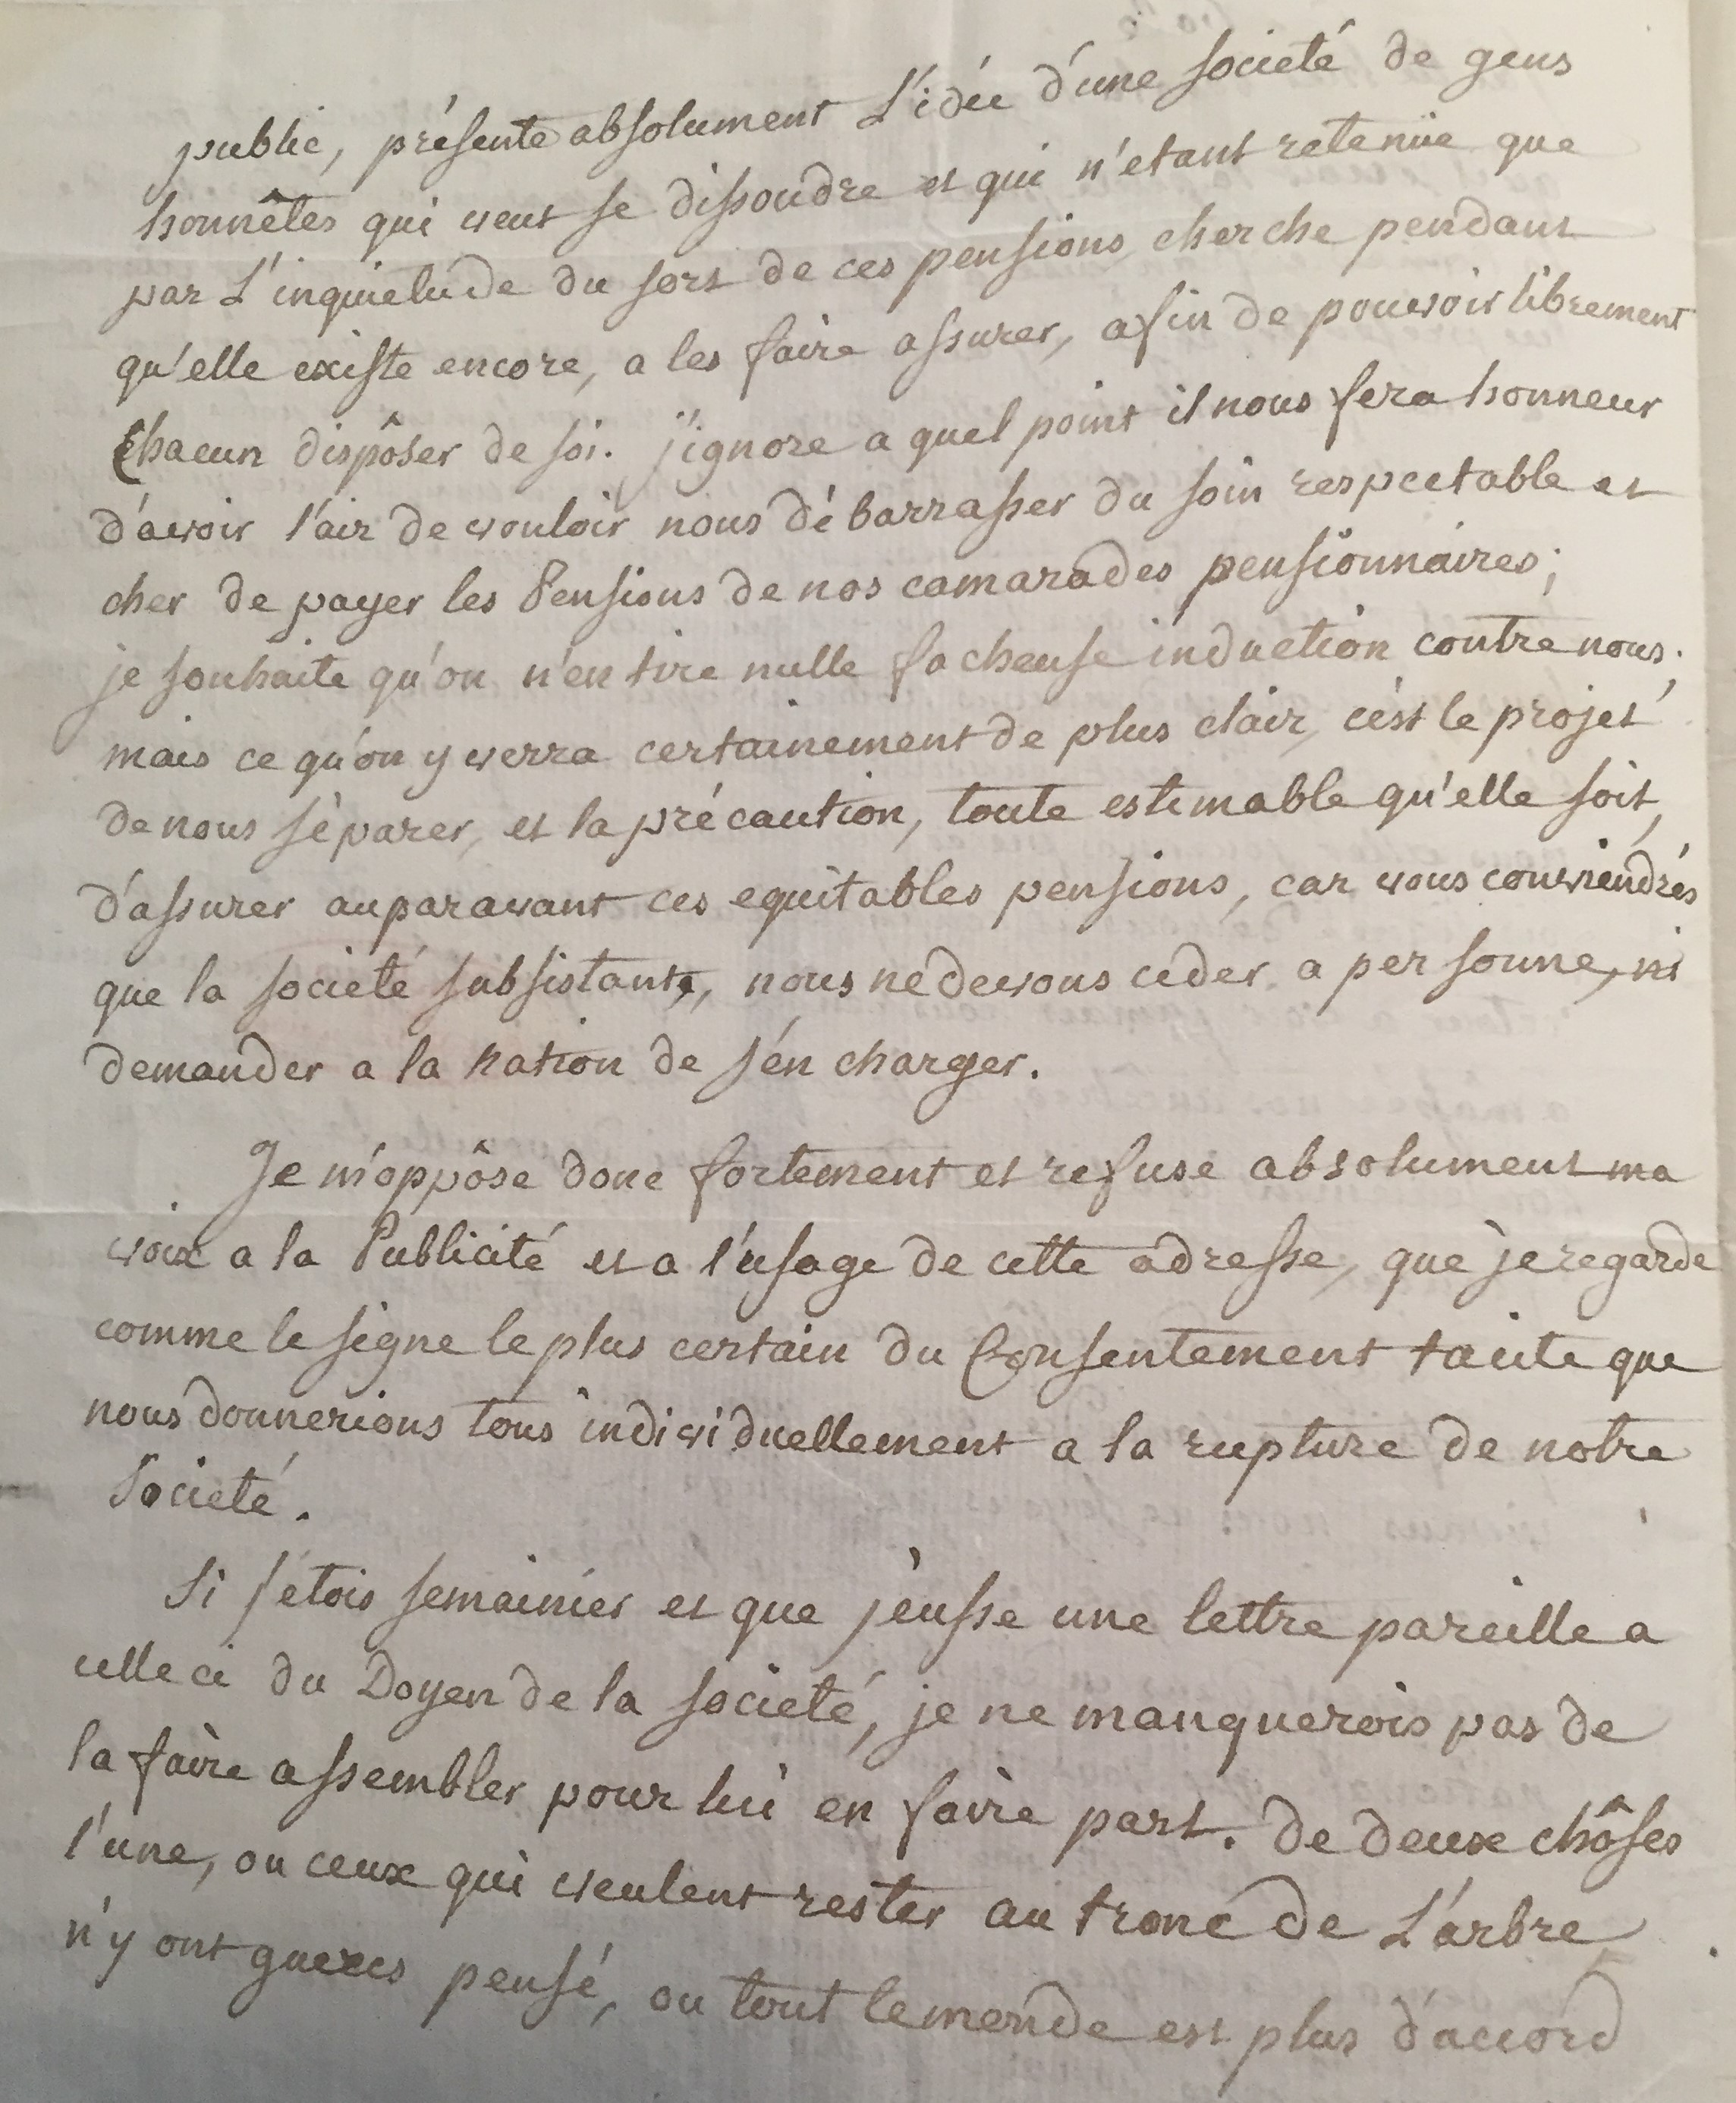 public, présente absolument L'idée d'une societé de gens
honnêtes qui veut se dissoudre et qui n'etant retenüe que
par L'inquietude du sort de ces pensions cherche pendant
qu'elle existe encore, a les faire assurer, afin de pouvoir librement
Chacun dispôser de soi. j'ignore a quel point il nous fera honneur
d'avoir l'air de vouloir nous débarrasser du soin respectable et
cher de payer les Pensions de nos camarades pensionnaires;
je souhaite qu'on n'en tire nulle facheuse induction contre nous;
mais ce qu'on y verra certainement de plus clair, c'est le projet
de nous séparer, et la précaution, toute estimable qu'elle soit,
d'assurer auparavant ces equitables pensions, car vous conviendrés
que la societé subsistante, nous ne devons ceder a personne, ni
demander a la Nation de s'én charger.
Je m'oppôse donc fortement et refuse absolument ma
voix a la Publicité et a l'usage de cette adresse, que je regarde
comme le signe le plus certain du Consentement tacite que
nous donnerions tous individuellement a la rupture de notre
Societé.
Si j'étois semainier et que j'eusse une lettre pareille a
celle ci du Doyen de la societé, je ne manquerois pas de
la faire assembler pour lui en faire part. De deux chôses
l'une, ou ceux qui veulent rester au tronc de L'arbre,
n'y ont gueres pensé, ou tout le monde est plus d'accord